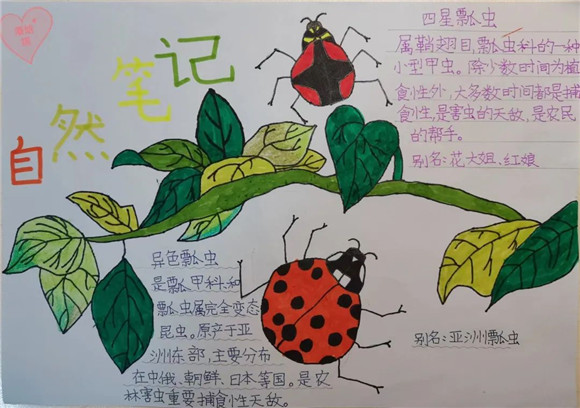 自然笔记
四星瓢虫
属鞘翅目,瓢虫科的一种
小型甲虫。除少数时间为植
食性外,大多数时间都是捕
食性,是害虫的天敌,是农民
的帮手。
别名:花大姐、红娘
异色瓢虫
是瓢甲科和
瓢虫属完全变态
昆虫。原产于亚
洲东部,主要分布
在中俄、朝鲜、日本等国。是农
林害虫重要捕食性天敌。
别名:亚洲瓢虫